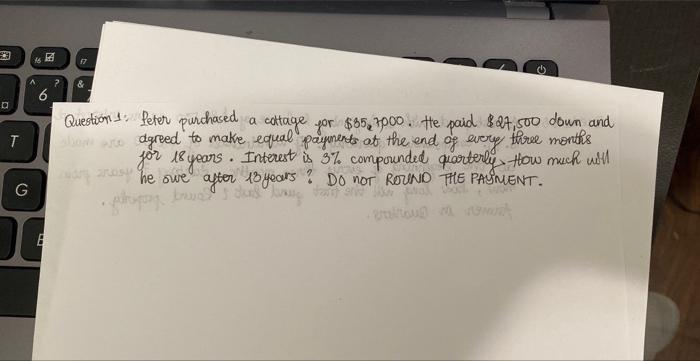 Question 1: Peter purchased a cottage for $35,7000. He paid $27,500 down and
agreed to make equal payments at the end of every three months
for 18 years. Interest is 3% compounded quarterly. How much will
he owe after 13 years? DO NOT ROUND THE PAYMENT.
6
T
G